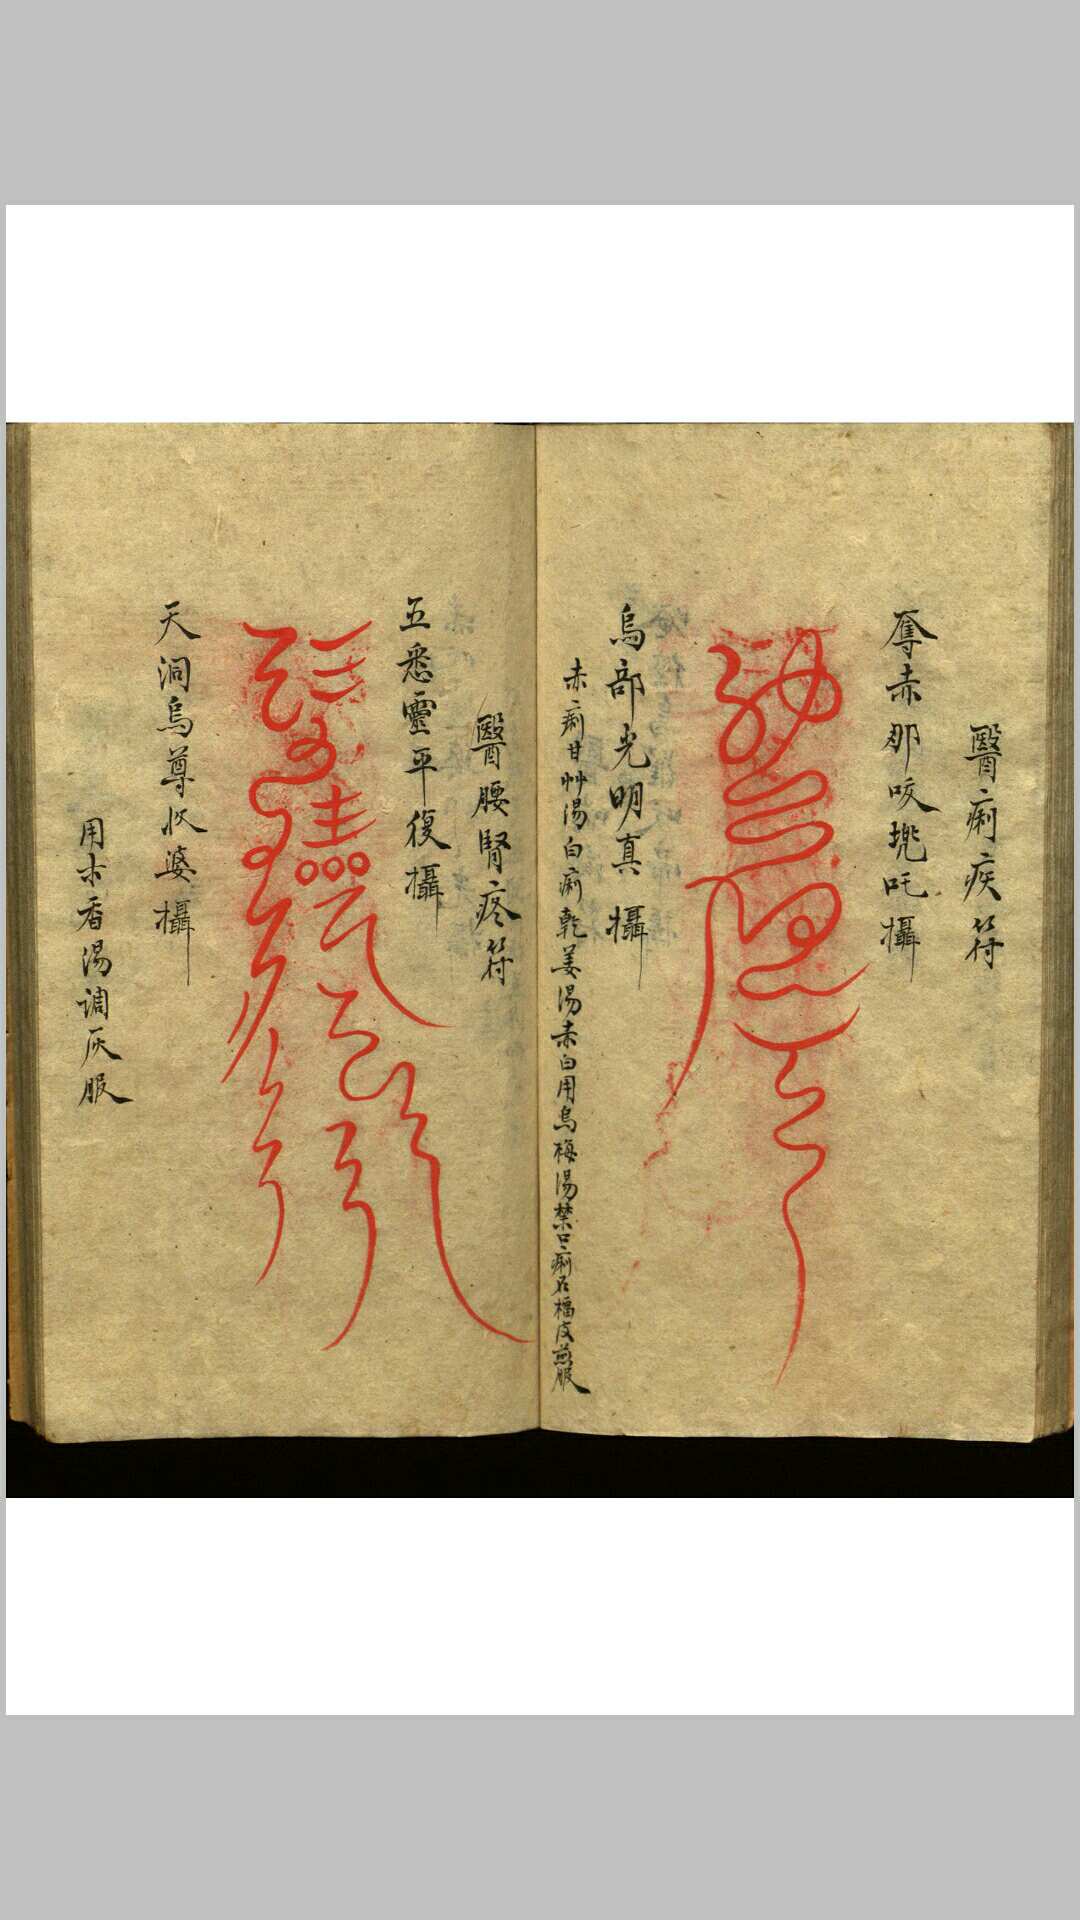 醫痢疾符
奪赤那吺㙇吒攝
烏部光明真攝
赤痢甘艸湯白痢乾姜湯赤白用烏梅湯禁口痢石榴皮煎服
醫腰腎疼符
五悉靈平復攝
天洞烏尊婆攝
用木香湯調灰服